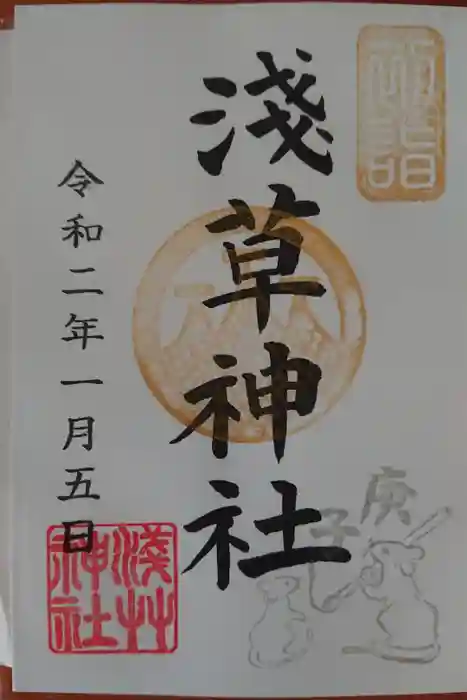 初詣
淺草神社
庚子
令和二年一月五日
淺草神社